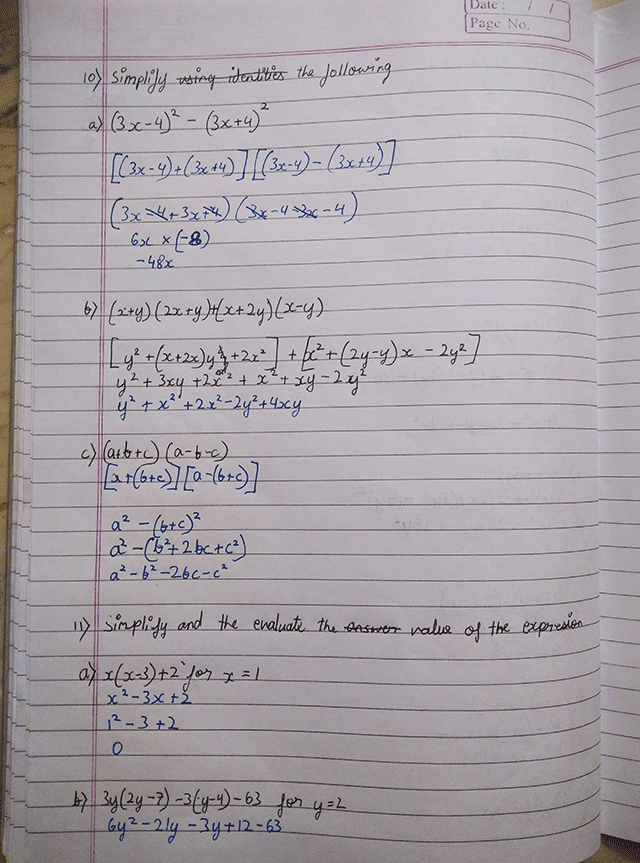 Date : / /
Page No.
10) Simplify using identities the following
a) (3x-4)² - (3x+4)²
[(3x-4)+(3x+4)] [(3x-4)-(3x+4)]
(3x-4+3x+4) (3x-4-3x-4)
6x × (-8)
-48x
b) (x+y) (2x+y)+(x+2y)(x-y)
[y²+(x+2x)y+2x²] + [x²+(2y-y)x - 2y²]
y² + 3xy + 2x² + x² + xy - 2y²
y² + x² + 2x² - 2y² + 4xy
c) (a+b+c) (a-b-c)
[x+(b+c)] [a-(b+c)]
a² - (b+c)²
a² - (b²+2bc+c²)
a² - b² - 2bc - c²
11) Simplify and the evaluate the answer value of the expresion
a) x(x-3)+2 for x = 1
x² - 3x + 2
1² - 3 + 2
0
b) 3y(2y-7) - 3(y-4) - 63 for y=2
6y² - 21y - 3y + 12 - 63